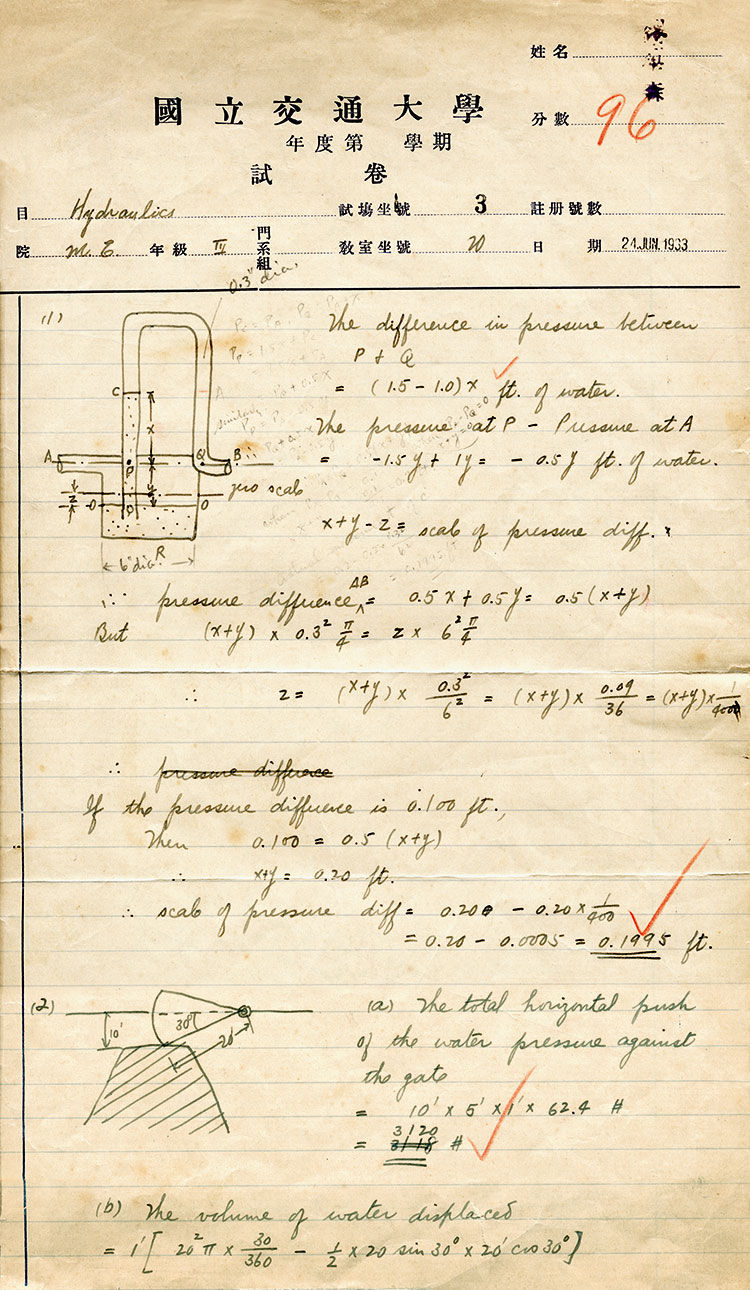 姓名
國立交通大學
分數 96
年度第 學期
試卷
目 Hydraulics 試場坐號 3 註册號數
院 M.E. 年級 IV 門系組 教室坐號 20 日期 24 JUN. 1933
(1)
0.3" dia.
The difference in pressure between
P & Q
= (1.5 - 1.0) x ft. of water.
The pressure at P - Pressure at A
= -1.5y + 1y = -0.5y ft. of water.
x+y-z = scale of pressure diff.
C
A
x
A
P
Q
B
y
z
zero scale
O
D
O
6" dia.
R
∴ pressure difference AB = 0.5x + 0.5y = 0.5(x+y)
But (x+y) x 0.3² π/4 = z x 6² π/4
∴ z = (x+y) x 0.3²/6² = (x+y) x 0.09/36 = (x+y) x 1/400
∴ pressure difference
If the pressure difference is 0.100 ft.,
Then 0.100 = 0.5 (x+y)
∴ x+y = 0.20 ft.
∴ scale of pressure diff = 0.200 - 0.20 x 1/400
= 0.20 - 0.0005 = 0.1995 ft.
(2)
10'
30°
20'
(a) The total horizontal push
of the water pressure against
the gate
= 10' x 5' x 1' x 62.4 #
3120
= 3118 #
(b) The volume of water displaced
= 1' [ 20² π x 30/360 - 1/2 x 20 sin 30° x 20' cos 30° ]